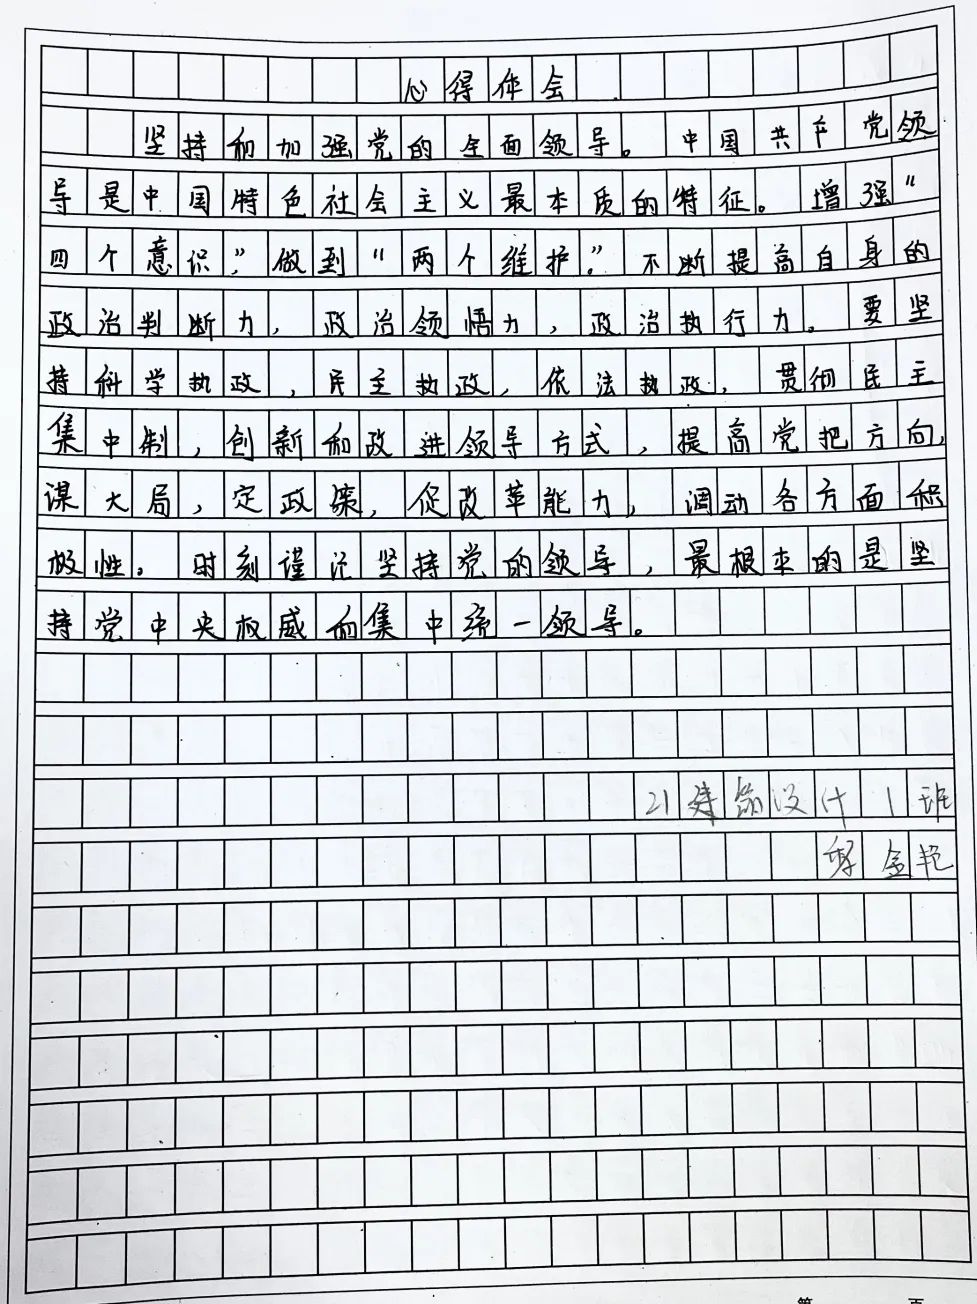 心得体会
坚持和加强党的全面领导。中国共产党领
导是中国特色社会主义最本质的特征。增强“
四个意识”，做到“两个维护”。不断提高自身的
政治判断力，政治领悟力，政治执行力。要坚
持科学执政，民主执政，依法执政，贯彻民主
集中制，创新和改进领导方式，提高党把方向，
谋大局，定政策，促改革能力，调动各方面积
极性。时刻谨记坚持党的领导，最根本的是坚
持党中央权威和集中统一领导。
21建筑设计1班
金艳
第 页